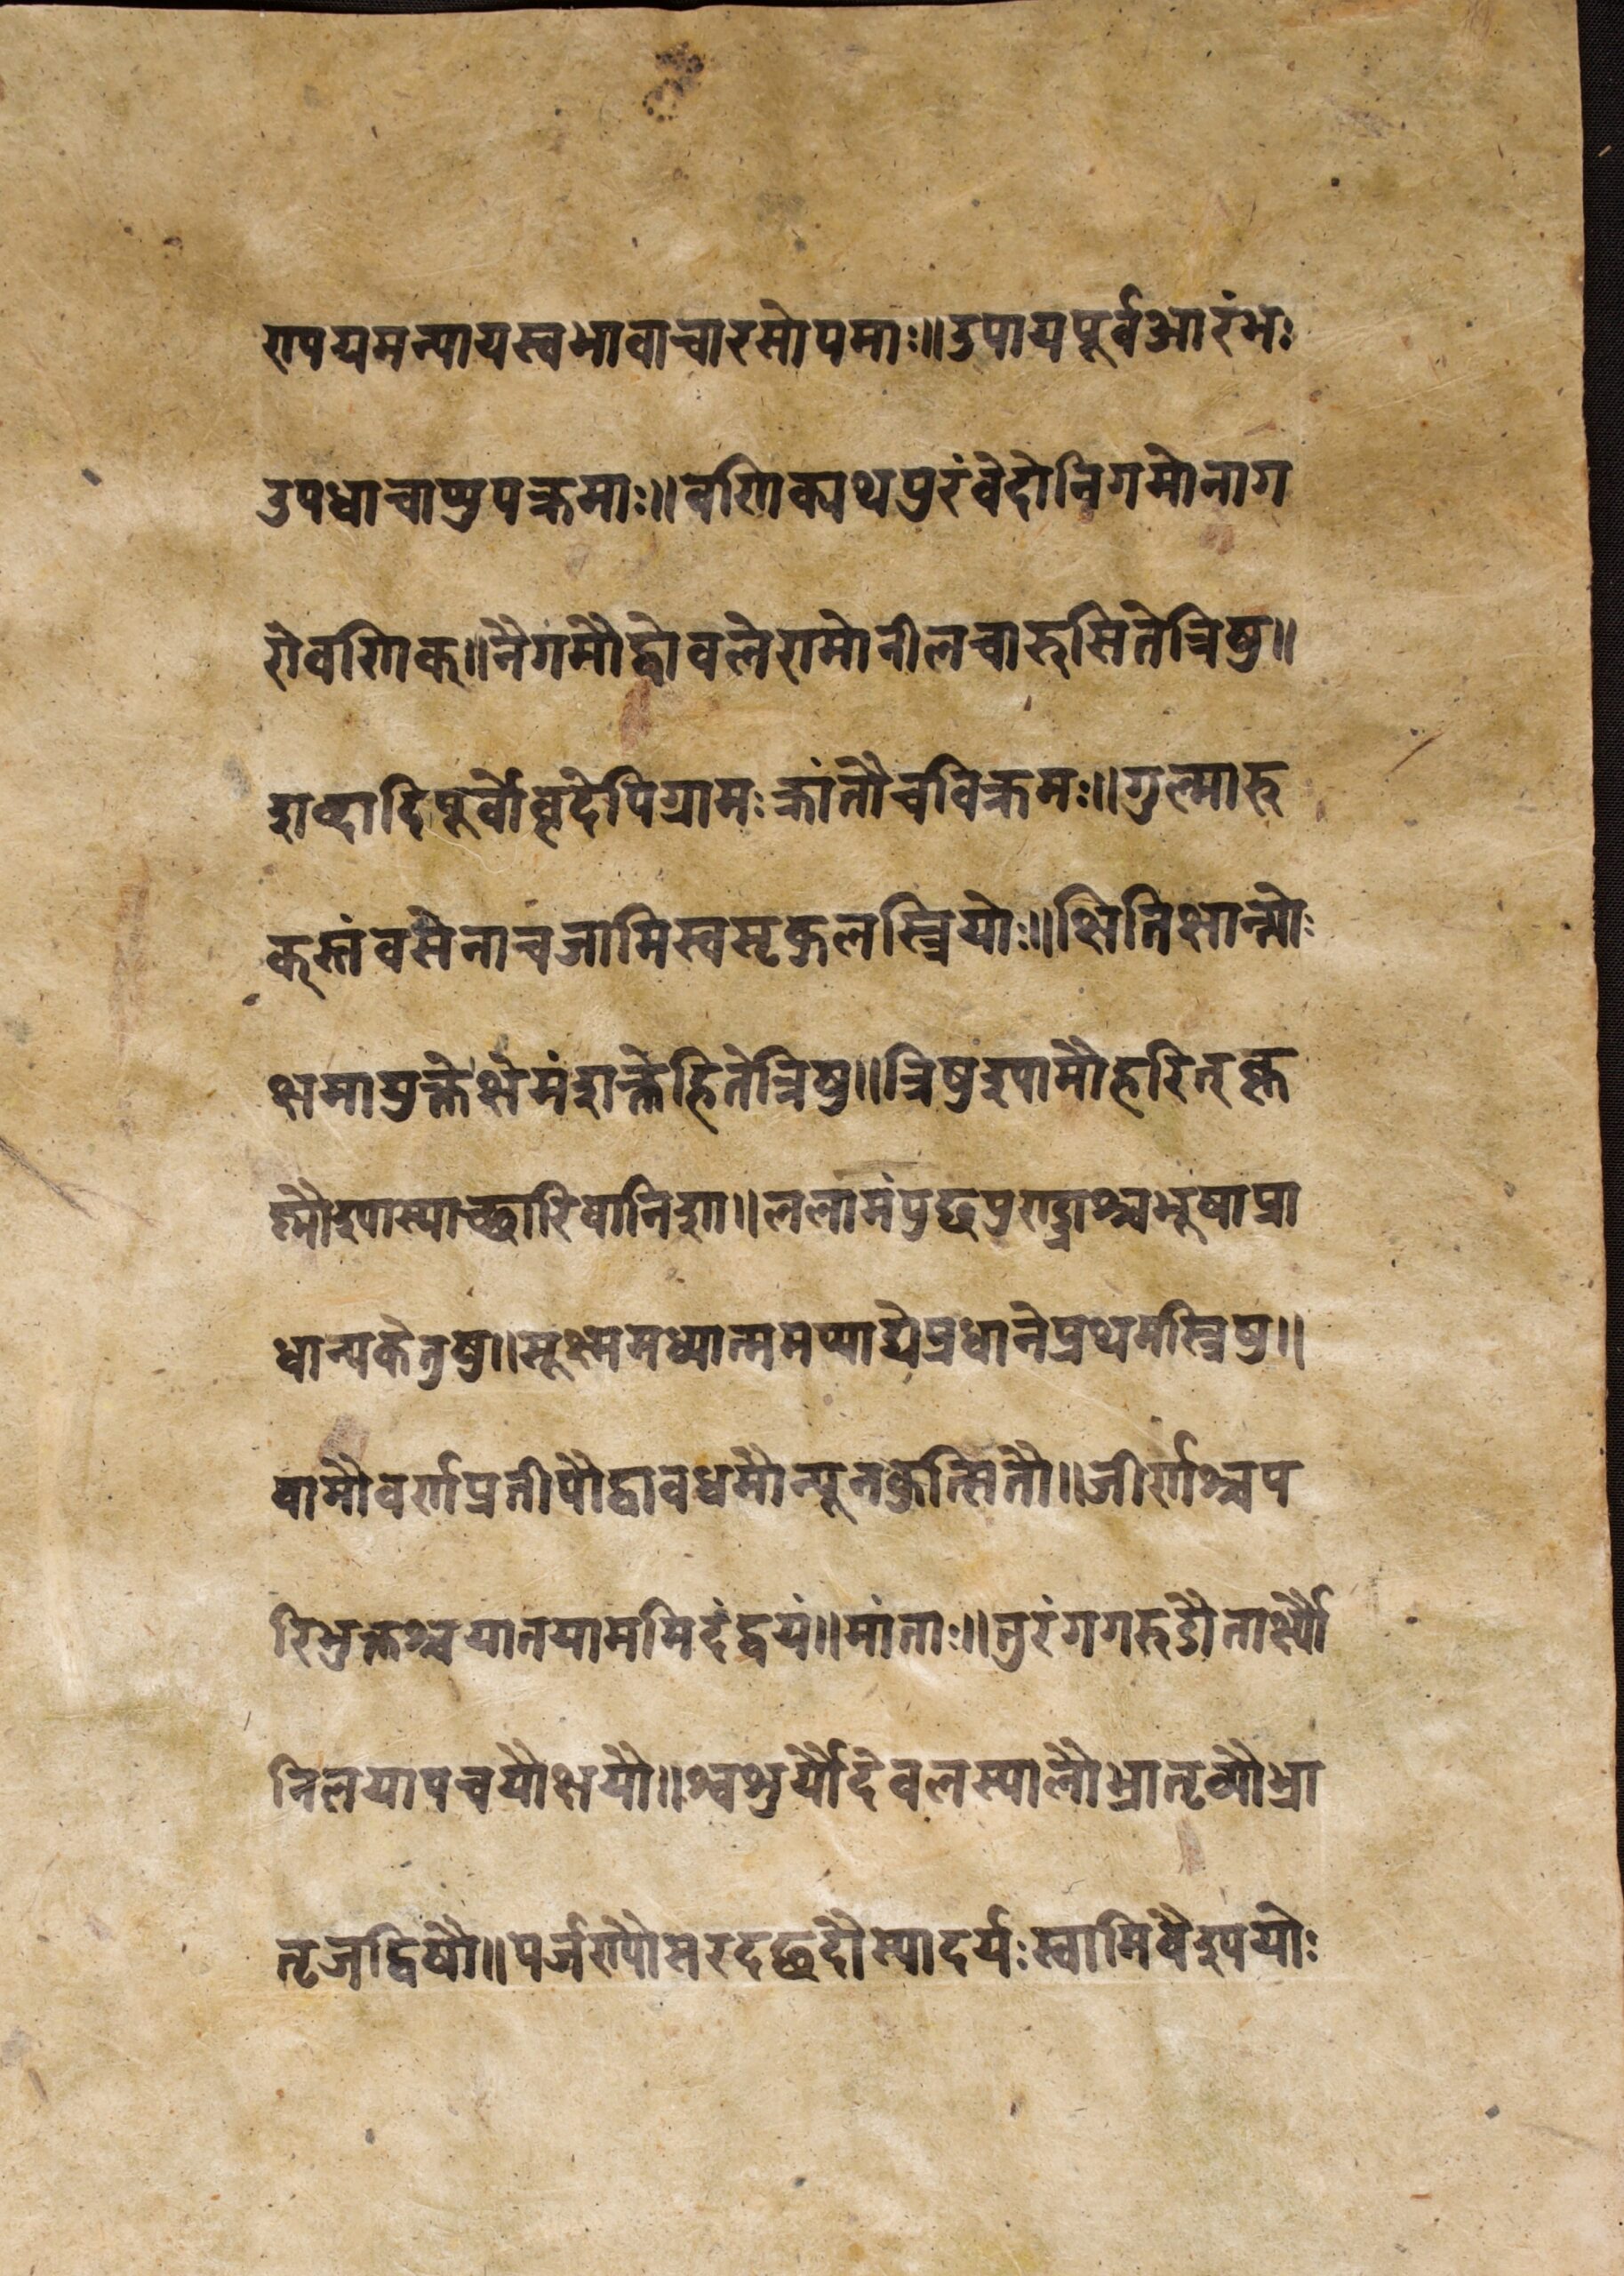 रापयमन्यायस्वभावाचारसोपमाः॥उपायपूर्वआरंभः
उपधाचाप्युपक्रमाः॥वणिक्पथपुरंवेदोनिगमोनाग
रोवणिक्॥नैगमौद्वौवलेरामोनीलचारुसितेत्रिषु॥
शब्दादिपूर्वोवृंदेपिग्रामःक्रांतौचविक्रमः॥गुल्मारु
क्स्तंवसेनाचजामिस्वसृकुलस्त्रियोः॥क्षितिक्षान्त्योः
क्षमायुक्तेक्षेमंशक्तेहितेत्रिषु॥त्रिषुश्यामौहरित्कृ
ष्णौश्यामास्याच्छारिवानिशा॥ललामंपुछपुराड्राश्वभुषाप्रा
धान्यकेतुषु॥सूक्ष्ममध्यात्ममप्याद्येप्रधानेप्रथमस्त्रिषु॥
वामौवर्णप्रतीपौद्वावधमौन्यूनकुत्सितौ॥जीर्णश्चप
रिभुक्तश्चयातयाममिदंद्वयं॥मांताः॥तुरंगगरुडौतार्क्ष्यौ
निलयापचयौक्षयौ॥श्वशुर्यौदेवलस्यालौभ्रातृव्यौभ्रा
तृजद्विषौ॥पर्जरापौसरदछदौस्यादर्यःस्वामिवैश्ययोः